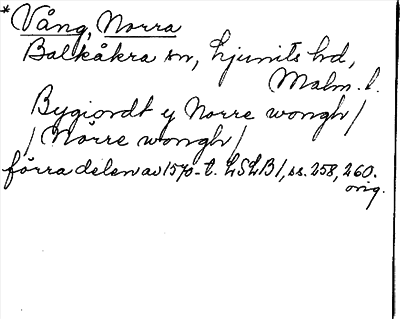 * Vång, Norra
Balkåkra sn, Ljunits hd,
Malm. l.
Bygiordt ij Norre wongh/
/Nörre wongh/
förra delen av 1570-t. LSLB1, ss. 258, 260.
orig.